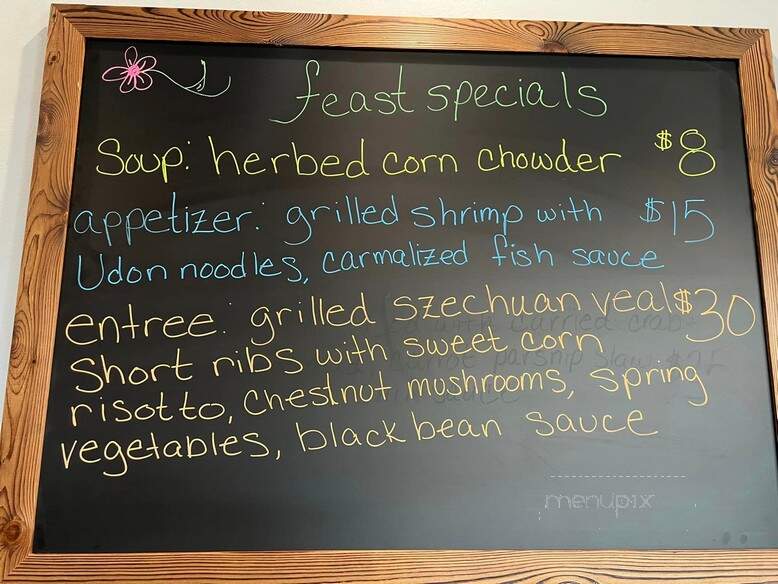 feast specials
Soup: herbed corn chowder $8
appetizer: grilled shrimp with $15
Udon noodles, carmalized fish sauce
entree: grilled szechuan veal $30
Short ribs with sweet corn
risotto, chestnut mushrooms, spring
vegetables, black bean sauce
menupix